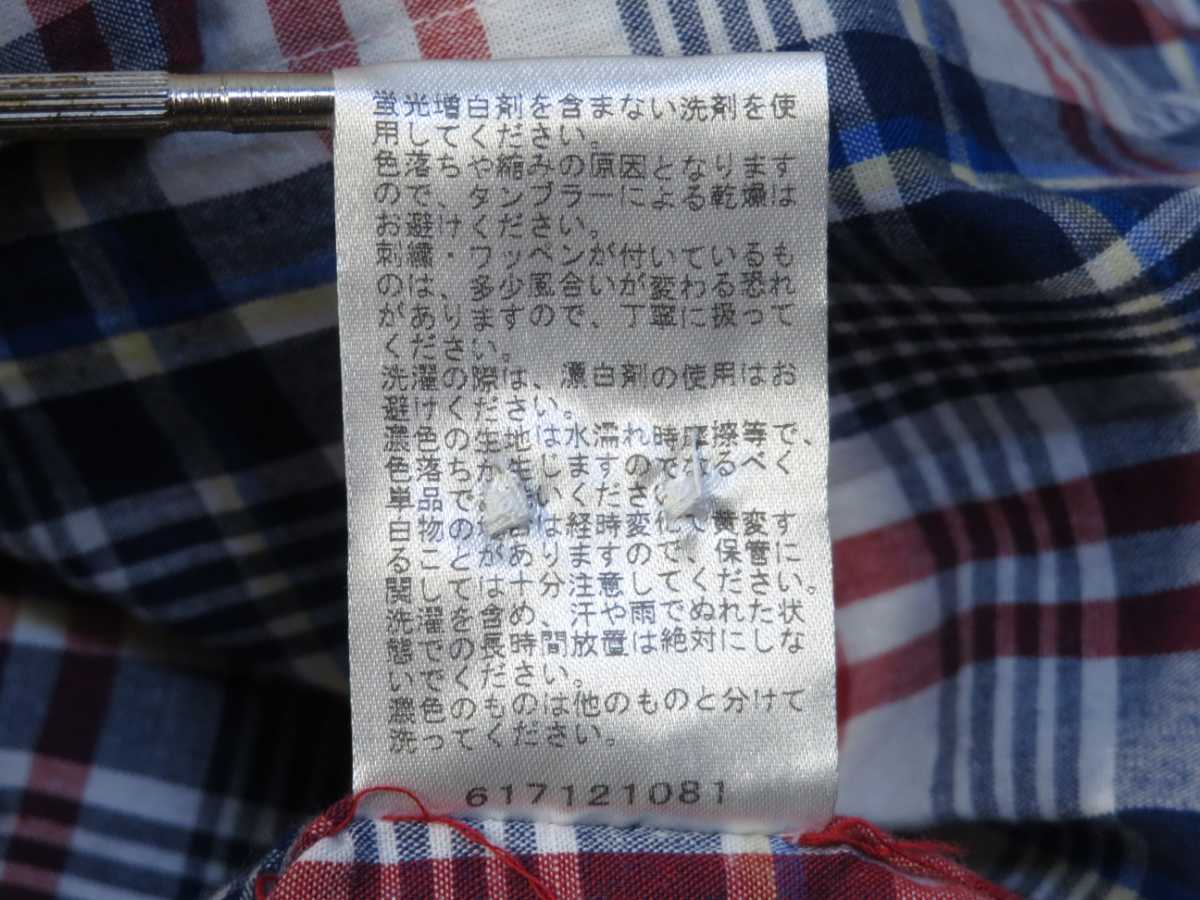 蛍光増白剤を含まない洗剤を使
用してください。
色落ちや縮みの原因となります
ので、タンブラーによる乾燥は
お避けください。
刺繍・ワッペンが付いているも
のは、多少風合いが変わる恐れ
がありますので、丁寧に扱って
ください。
洗濯の際は、漂白剤の使用はお
避けください。
濃色の生地は水濡れ時摩擦等で、
色落ちが生じますのでなるべく
単品でお洗いください。
白物の は経時変化で黄変す
ることがありますので、保管に
関しては十分注意してください。
洗濯を含め、汗や雨でぬれた状
態での長時間放置は絶対にしな
いでください。
濃色のものは他のものと分けて
洗ってください。
617121081